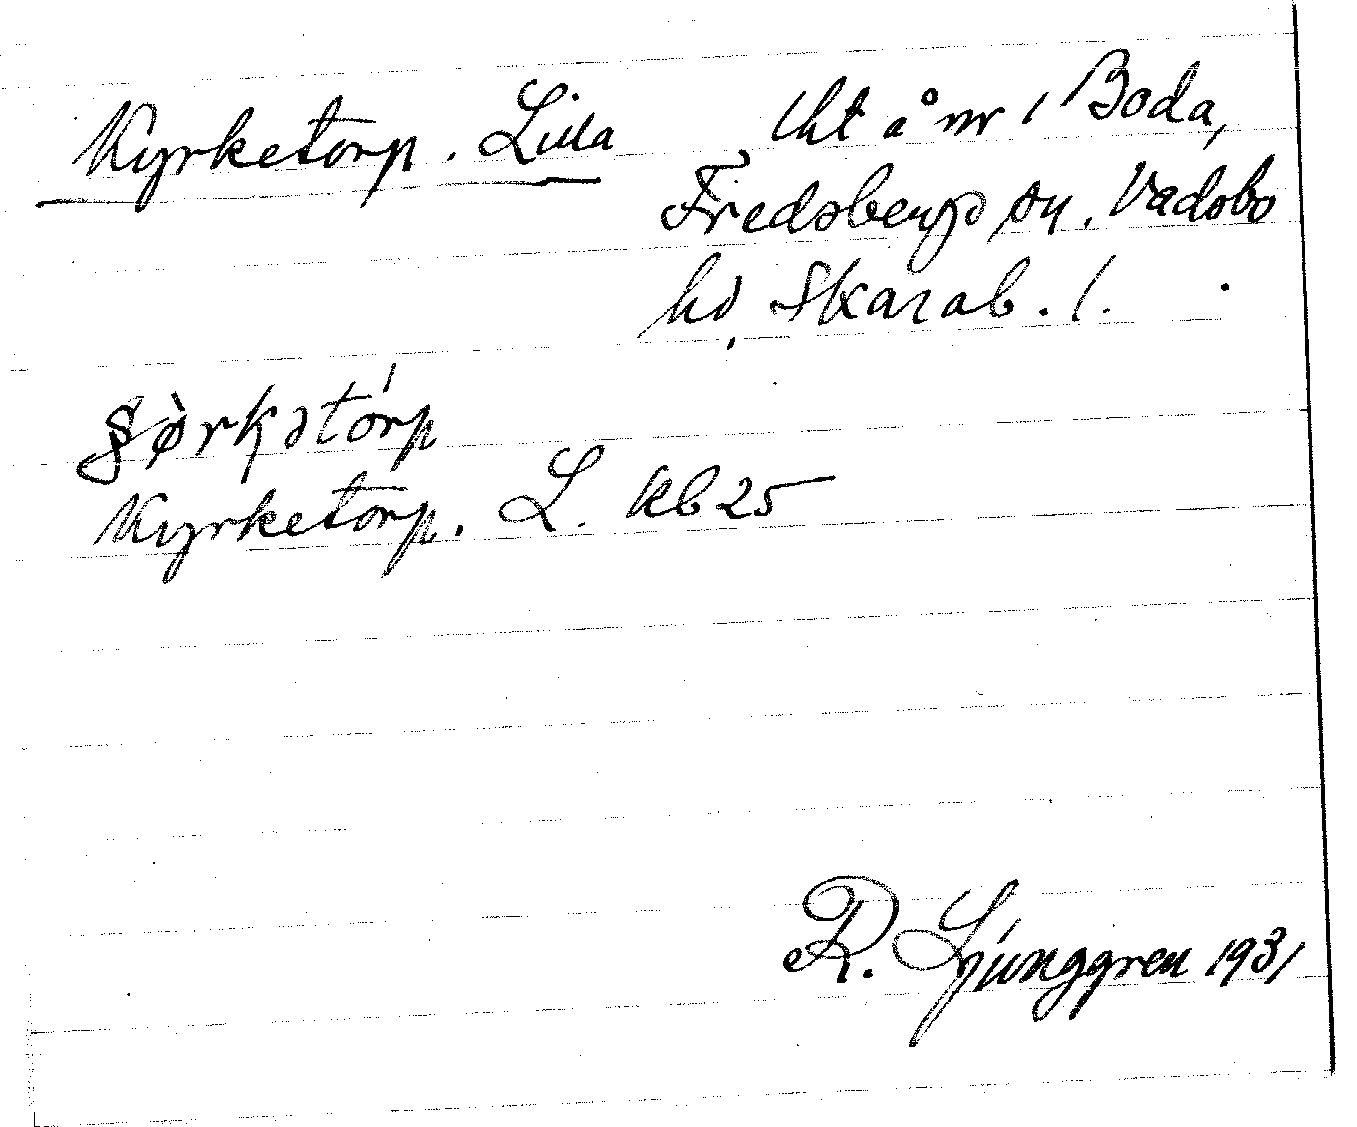 Kyrketorp. Lilla
lht å nr 1 Boda,
Fredsbergs sn. Vadsbo
hd, Skarab. l.
Kyrketorp. L. kb 25
R. Ljunggren 1931